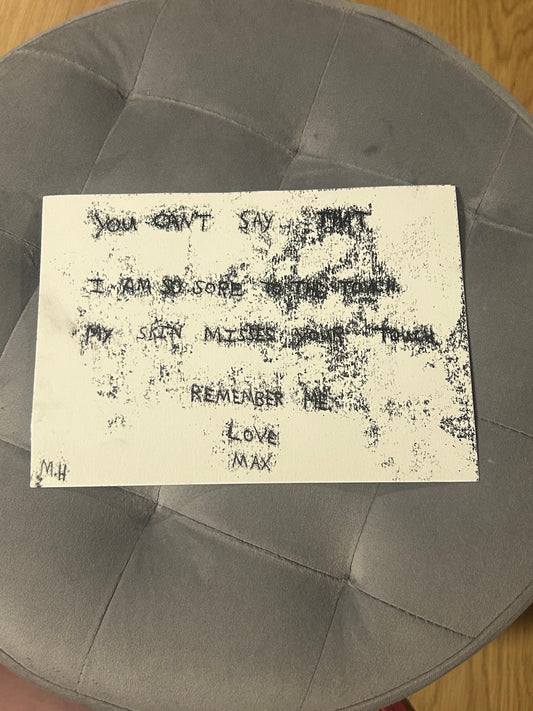 YOU CAN'T SAY THAT
I AM SO SORE TO THE TOUCH
MY SKIN MISSES YOUR TOUCH
REMEMBER ME
LOVE
MAX
M.H